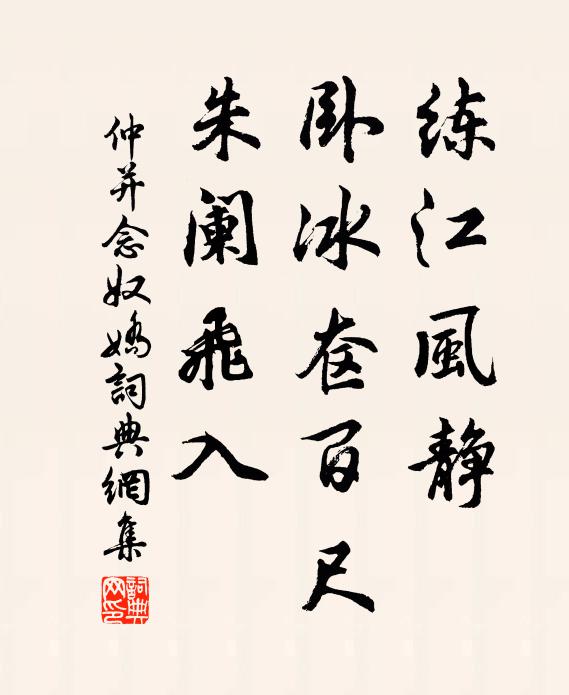 练江風静
卧冰奁百尺
朱阑飛入
仲并念奴嬌詞典網集
詞典网印